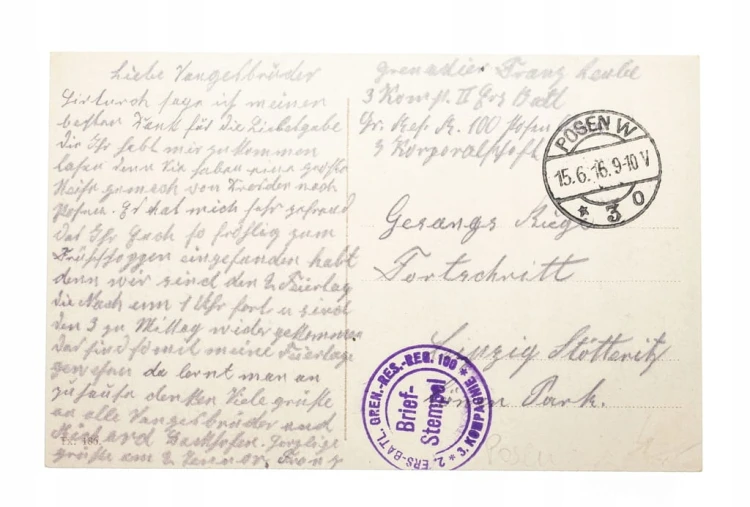 Liebe Sangesbrüder
Hirdurch sage ich meinen
besten Dank für die Liebesgabe
die Ihr habt mir zukommen
lasen denn Sie haben eine große
Reise gemach von Dresden nach
Posen. Es hat mich sehr gefreud
das Ihr Euch so fröhlig zum
Frühschoppen eingefunden habt
denn wir sind den 2 Feierlag
die Nach um 1 Uhr fort u sind
den 3 zu Mittag wider gekommen
das sind so mit meine Feierlage
gewesen da lernt man an
zuhause denken Viele grüße
an alle Sangesbrüder und
Richard Backhofen. Herzliche
grüße Franz
Grenadier Franz
3 Komp. II Ers Batl
Gr. Res. R. 100 Posen
3 Korporalschaft
POSEN W
15.6.16.9-10 V
* 3 o
Gesangs Riege
Fortschritt
Leipzig Stötteritz
Park.
2. ERS-BATL. GREN.-RES.-REG. 100 * 3. KOMPAGNIE *
Brief-
Stempel
Posen